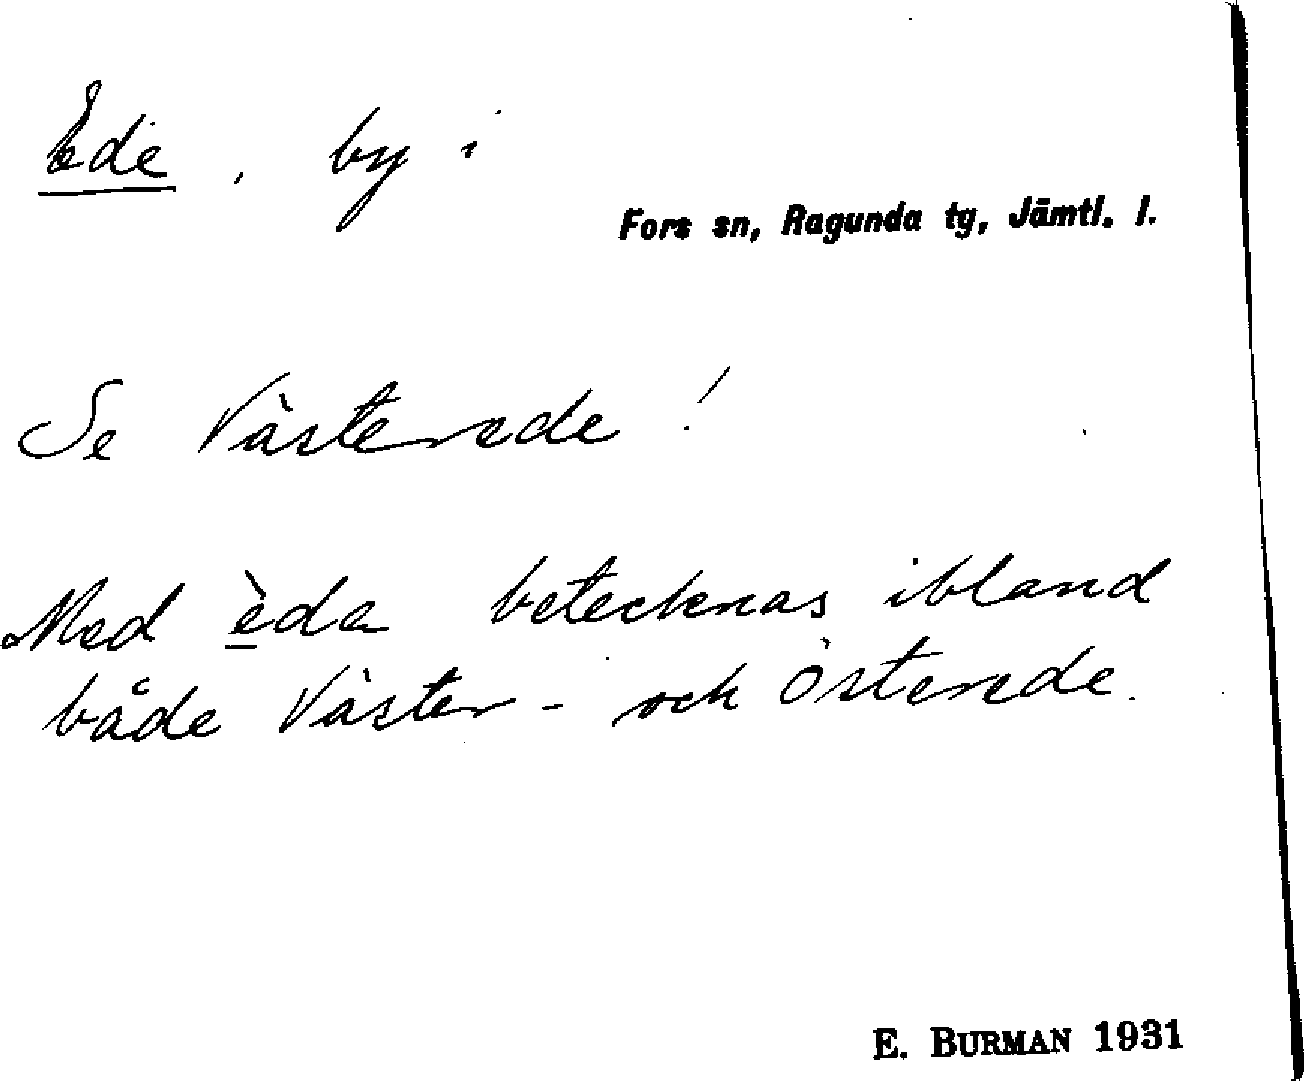 Ede, by i
Fors sn, Ragunda tg, Jämtl. l.
Se Västerede!
Med èda betecknas ibland
både Väster- och Österede.
E. BURMAN 1931